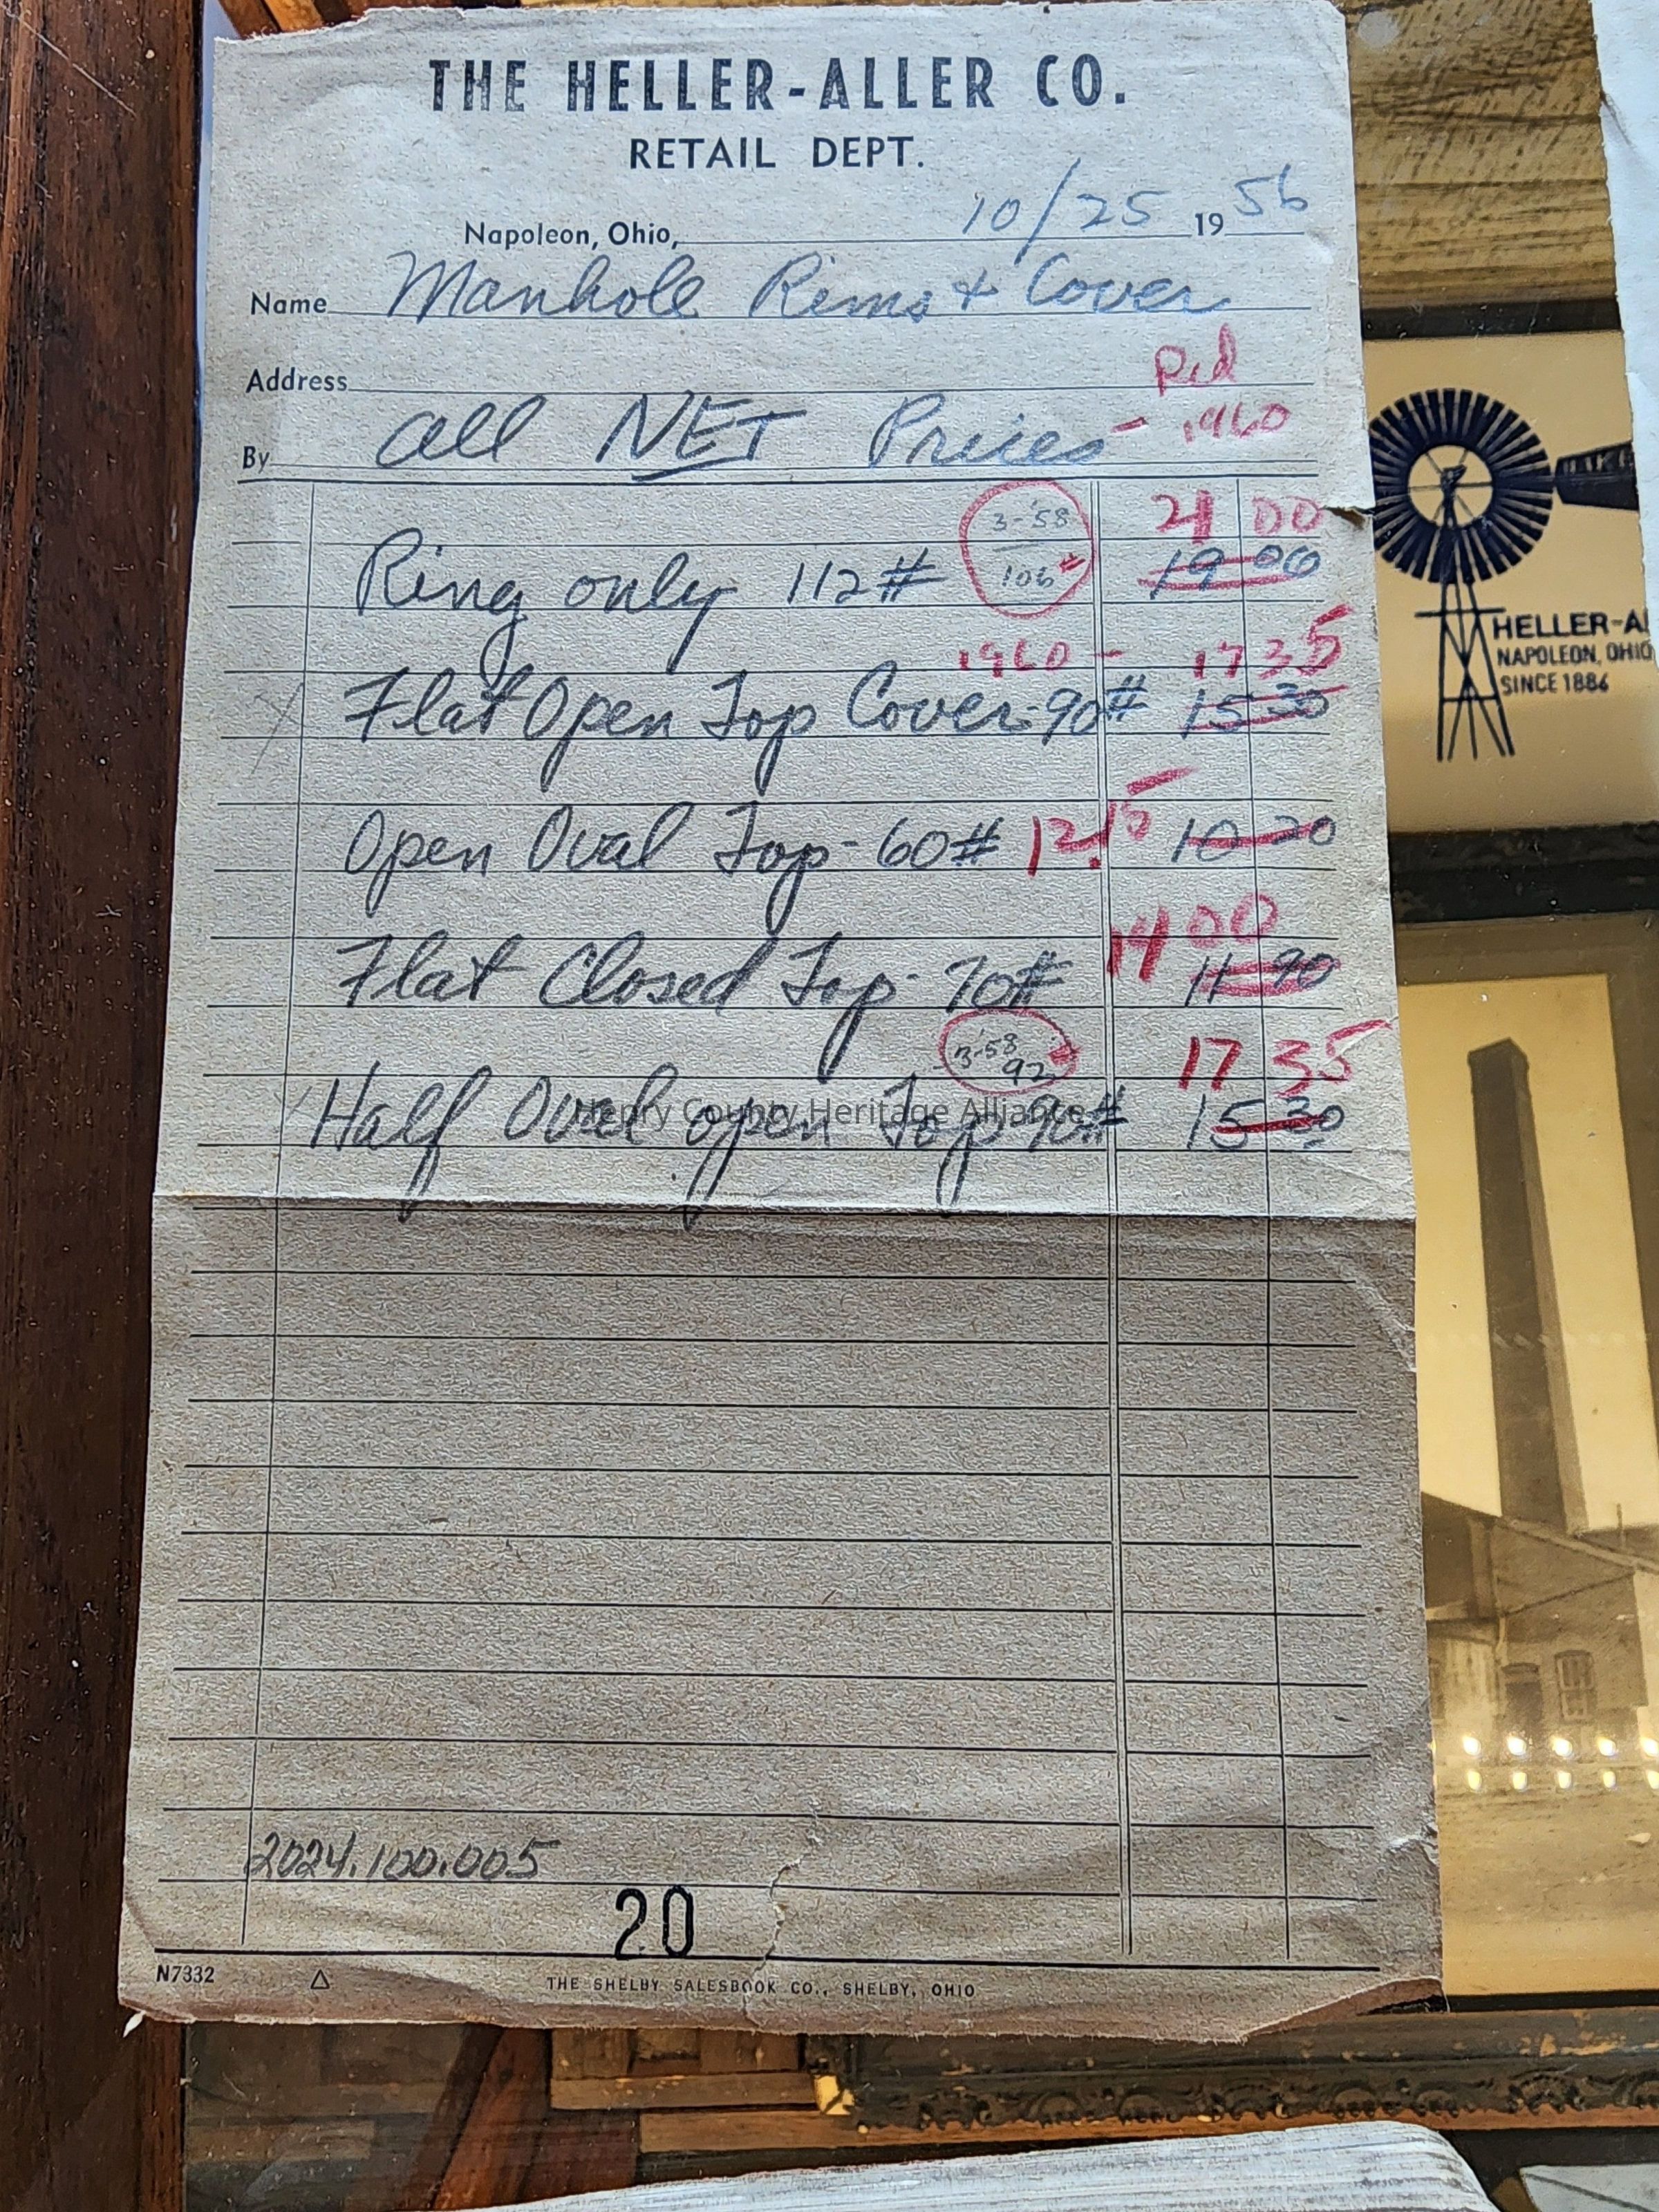 THE HELLER-ALLER CO.
RETAIL DEPT.
Napoleon, Ohio, 10/25 1956
Name Manhole Rims + Cover
Address Red
By all NET Prices - 1960
3-'58 21 00
Ring only 112# 106# 19 00
1960 - 17 35
Flat Open Top Cover-90# 15 30
Open Oval Top- 60# 12.15 10 20
14 00
Flat Closed Top- 70# 11 90
3-'58 92# 17 35
Half Oval open Top 90# 15 30
Henry County Heritage Alliance
2024.100.005
20
N7332 △ THE SHELBY SALESBOOK CO., SHELBY, OHIO
HELLER-AL
NAPOLEON, OHIO
SINCE 1886